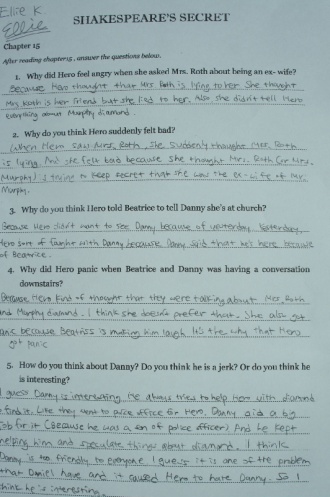 Ellie K.
Ellie
SHAKESPEARE'S SECRET
Chapter 15
After reading chapter 15, answer the questions below.
1. Why did Hero feel angry when she asked Mrs. Roth about being an ex- wife?
Because Hero thought that Mrs. Roth is lying to her. She thought
Mrs. Roth is her friend but she lied to her. Also she didn't tell Hero
everything about Murphy diamond.
2. Why do you think Hero suddenly felt bad?
When Hero saw Mrs. Roth, she suddenly thought Mrs. Roth
is lying. And she felt bad because she thought Mrs. Roth (or Mrs.
Murphy) is trying to keep secret that she was the ex-wife of Mr.
Murphy.
3. Why do you think Hero told Beatrice to tell Danny she's at church?
Because Hero didn't want to see Danny because of yesterday. Yesterday,
Hero sort of fought with Danny because Danny said that he's here because
of Beatrice.
4. Why did Hero panic when Beatrice and Danny was having a conversation
downstairs?
Because Hero kind of thought that they were talking about Mrs. Roth
and Murphy diamond. I think she doesn't prefer that. She also got
panic because Beatriss is making him laugh. It's the why that Hero
got panic
5. How do you think about Danny? Do you think he is a jerk? Or do you think he
is interesting?
I guess Danny is interesting. He always tries to help Hero with diamond
to find it. Like they went to police office for Hero. Danny did a big
job for it (Because he was a son of police officer) And he kept
helping him and speculate things about diamond. I think
Danny is too friendly to everyone. I guess it is one of the problem
that Daniel have and it caused Hero to hate Danny. So I
think he is interesting.